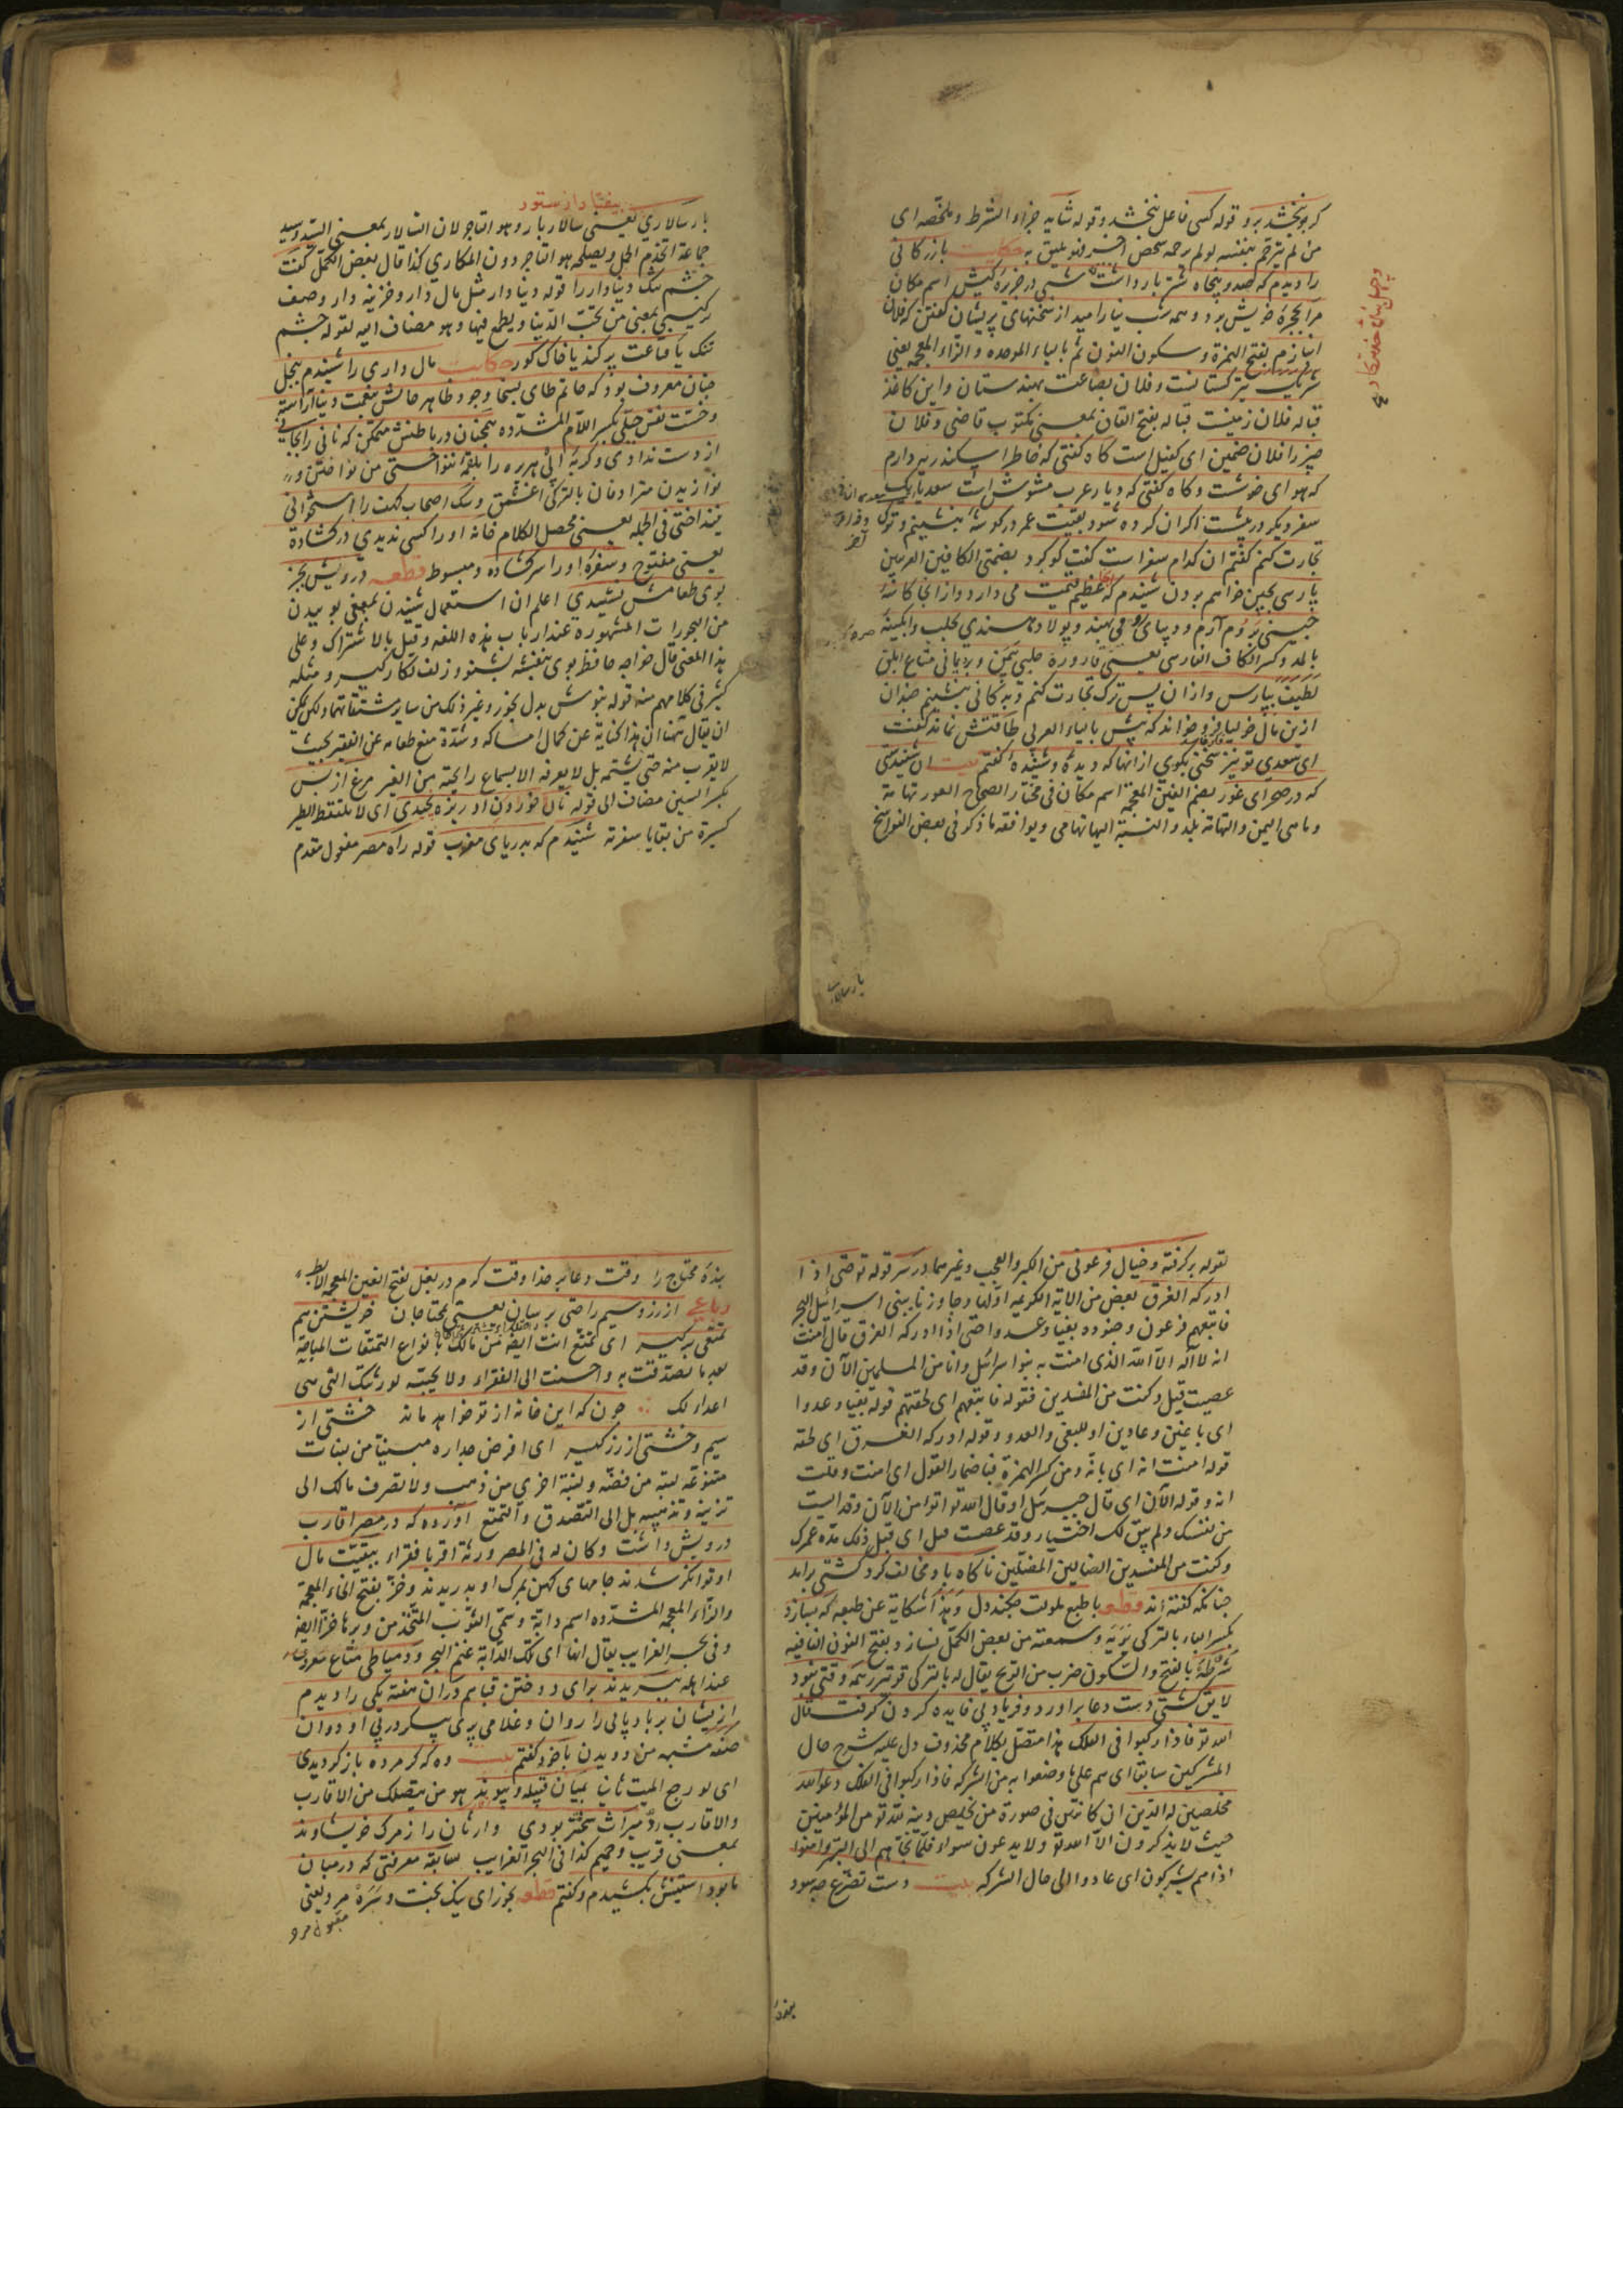 كر بنخشد برو قوله كسى فاعل بنخشد وقوله شايد جزاء الشرط وملخصه اى
من لم يترحم بنفسه لو لم رحمه شخص آخر فهو يليق به حكايت بازركانى
را ديدم كه صد و پنجاه شتر بار داشت شبى در جزيره كيش اسم مكان
مرا بحجره خويش برد و همه شب نياراميد از سخنهاى پريشان كفتن كه فلان
انبازم بفتح الهمزة وسكون النون ثم بالباء الموحده والزاء المعجمه يعنى
شريك بتركستانست وفلان بضاعت بهندستان واين كاغذ
قباله فلان زمينست قباله بفتح القاف بمعنى مكتوب قاضى وفلان
چيز را فلان ضمين اى كفيل است كاه كفتى كه خاطر اسكندريه دارم
كه هواى خوشست وكاه كفتى كه ديار عرب مشوش است سعديا يك
سفر ديكر در پيشست اكر ان كرده شود بقيت عمر در كوشه بنشينم وترك
تجارت كنم كفتم ان كدام سفر است كفت كوكرد بضمتى الكافين العربيين
پارسى بچين خواهم بردن شنيدم كه عظيم قيمت مى دارد واز انجا كاسه
چينى بروم آرم وديباى رومى بهند وپولاد هندى بحلب وابكينه
بالمد وكسر الكاف الفارسى يعنى قاروره حلبى بيمن وبرد يمانى متاع ابلق
لطيف بپارس وازان پس ترك تجارت كنم وبدكانى بنشينم چندان
ازين ماليخوليا فرو خواند كه بيش بالباء العربى طاقتش نماند كفت
اى سعدى تو نيز سخنى بكوى از انها كه ديده وشنيده كفتم بيت ان شنيدستى
كه در صحراى غور بضم الغين المعجمة اسم مكان فى مختار الصحاح الغور تهامة
وما يلى اليمن والتهامة بلد والنسبة اليها تهامى ويوافقه ما ذكر فى بعض التواريخ
بيفتاد از ستور
بار سالارى يعنى سالار بار وهو التاجر لان السالار بمعنى السيد وسيد
جماعة اتخذتم الحمل ويصلحه هو التاجر دون المكارى كذا قال بعض الكمل كفت
چشم تنك دنيادار را قوله دنيادار مثل مال دار وخزينه دار وصف
تركيبى بمعنى من يحب الدنيا ويطمع فيها وهو مضاف اليه لقوله چشم
تنك يا قناعت پر كند يا خاك كور حكايت مال دارى را شنيدم ببخل
چنان معروف بود كه حاتم طاى بسخا وجود ظاهر حالش بنعمت دنيا آراسته
وخست نفس جبلى بكسر اللام المشدده همچنان در باطنش متمكن كه نانى را بجانى
از دست ندادى وكربه ابى هريره را بلقمه ننواختى من نواختن
نوازيدن مترادفان بالتركى اغشمق وسك اصحاب كهف را استخوانى
نينداختى فى الجمله يعنى محصل الكلام خانه او را كسى نديدى در كشاده
يعنى مفتوح وسفره او را سر كشاده ومبسوط قطعه درويش بجز
بوى طعامش نشنيدى اعلم ان استعمال شنيدن بمعنى بوييدن
من المجورات المشهورة عند ارباب هذه اللغه وقيل بالاشتراك وعلى
هذا المعنى قال خواجه حافظ بوى بنفشه بشنو وزلف نكار كير ومثله
كثير فى كلامهم منه قوله بنوش بدل بخور وغير ذلك من ساير مشتقاتهما ولكن يمكن
ان يقال هنا ان هذا كناية عن كمال امساكه وشدة منع طعامه عن الفقير بحيث
لا يقرب منه حتى يشتمه بل لا يعرفه الا بسماع رايحته من الغير مرغ از پس
بكسر السين مضاف الى قوله نان خوردن او ريزه نچيدى اى لا يلتقط الطير
كسيرة من بقايا سفرته شنيدم كه بدرياى مغرب قوله راه مصر مفعول مقدم
لقوله بركرفته وخيال فرعونى من الكبر والعجب وغيرهما در سر قوله تعالى حتى اذا
ادركه الغرق بعض من الاية الكريمه اولها وجاوزنا ببنى اسرائيل البحر
فاتبعهم فرعون وجنوده بغيا وعدوا حتى اذا ادركه الغرق قال امنت
انه لا اله الا الله الذى امنت به بنوا سرائل وانا من المسلمين الآن وقد
عصيت قبل وكنت من المفسدين فقوله فاتبعهم اى لحقهم قوله بغيا وعدوا
اى باغين وعادين او للبغى والعدو وقوله ادركه الغرق اى لحقه
قوله امنت انه اى بانه ومن كسر الهمزة فباضمار القول اى امنت وقلت
انه وقوله الآن اى قال جبريل او قال الله تع اتؤمن الآن وقد ايست
من نفسك ولم يبق لك اختيار وقد عصيت قبل اى قبل ذلك مدة عمرك
وكنت من المفسدين الضالين المضلين ناكاه باد مخالف كرد كشتى برآمد
چنانكه كفته اند قطعه با طبع ملولت چكند دل وهذا شكاية عن طبعه كه نسازد
بكسر الباء بالتركى نريه وسمعته من بعض الكمل نسازد بفتح النون النافيه
شرطه بالفتح والسكون ضرب من الريح يقال له بالتركى وقتى نبود
لايق كشتى دست دعا برآورد وفرياد بى فايده كردن كرفت قال
الله تع فاذا ركبوا فى الفلك هذا متصل بكلام محذوف دل عليه شرح حال
المشركين سابقا اى هم على ما وصفوا به من الشرك فاذا ركبوا فى الفلك دعوا الله
مخلصين له الدين اى كائنين فى صورة من يخلص دينه لله تع من المؤمنين
حيث لا يذكرون الا الله تع ولا يدعون سواه فلما نجاهم الى البر وامنوا
اذا هم يشركون اى عادوا الى حال الشرك بيت دست تضرع چه سود
بنده محتاج را وقت دعا بر خدا وقت كرم در بغل بفتح الغين المعجمه الابط
رباعى از زر وسيم راحتى برسان يعنى بمحتاجان خويشتن هم
تمتعى بركير اى تمتع انت ايضا من مالك بانواع التمتعات المباحة
بعد ما تصدقت به واحسنت الى الفقراء ولا يحبته لورثتك التى هى
اعداء لك چون كه اين خانه از تو خواهد ماند خشتى از
سيم وخشتى از زر كير اى افرض جداره مبنيا من لبنات
متنوعه لبنة من فضة ولبنة اخرى من ذهب ولا تصرف مالك الى
تزيينه وتذهيبه بل الى التصدق والتمتع آورده كه در مصر اقارب
درويش داشت وكان له فى المصر ورثة اقربا فقراء ببقيت مال
او توانكر شدند جامهاى كهن بمرك او بدريدند وخز بفتح الخاء المعجمة
والزاء المعجمه المشدده اسم دابة وسمى الثوب المتخذ من وبرها خزا ايضا
وفى بحر الغرايب يقال انها اى تلك الدابة غنم البحر ودمياطى متاع معروف
عند اهله ببريدند براى دوختن قبا هم دران هفته يكى را ديدم
ازيشان بر بادپايى را روان وغلامى پرى پيكر در پى او دوان
صفة مشبهه من دويدن با خود كفتم بيت وه كه كر مرده باز كرديدى
اى لو رجع الميت ثانيا بميان قبيله وپيوند هو من يتصلك من الاقارب
والاقارب رد ميراث سختتر بودى وارثان را ز مرك خويشاوند
بمعنى قريب وحميم كذا فى البحر الغرايب سابقه معرفتى كه درميان
ما بود استينش بكشيدم وكفتم قطعه بخور اى نيك بخت وسره مرد يعنى